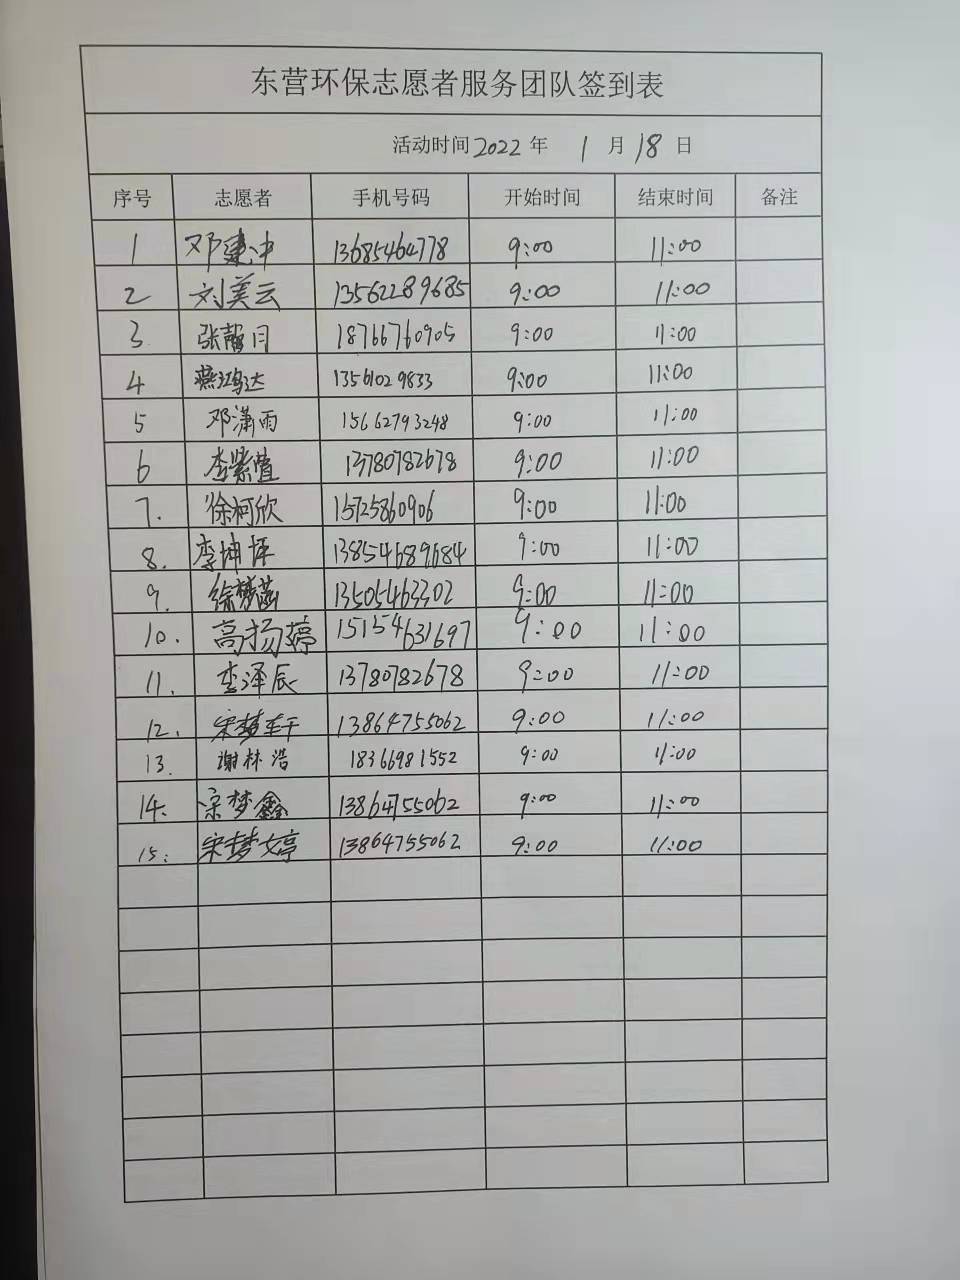 东营环保志愿者服务团队签到表
活动时间2022年 1月18日
序号 志愿者 手机号码 开始时间 结束时间 备注
1 邓建冲 13685464778 9:00 11:00
2 刘美云 13562289685 9:00 11:00
3. 张馨月 18766760905 9:00 11:00
4 燕鸿达 13561029833 9:00 11:00
5 邓潇雨 15662793248 9:00 11:00
6 李紫萱 13780782678 9:00 11:00
7. 徐柯欣 15725860906 9:00 11:00
8. 李坤坪 13854689684 9:00 11:00
9. 徐梦菡 13505463302 9:00 11:00
10. 高扬婷 15154631697 9:00 11:00
11. 李泽辰 13780782678 9:00 11:00
12. 宋梦轩 13864755062 9:00 11:00
13. 谢林浩 18366981552 9:00 11:00
14. 宋梦鑫 13864755062 9:00 11:00
15. 宋梦婷 13864755062 9:00 11:00